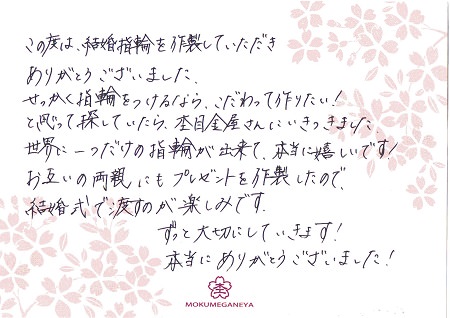 この度は、結婚指輪を作製していただき
ありがとうございました。
せっかく指輪をつけるなら、こだわって作りたい!
と思って探していたら、杢目金屋さんにいきつきました。
世界に一つだけの指輪が出来て、本当に嬉しいです!
お互いの両親にもプレゼントを作製したので、
結婚式で渡すのが楽しみです。
ずっと大切にしていきます!
本当にありがとうございました!
杢
MOKUMEGANEYA